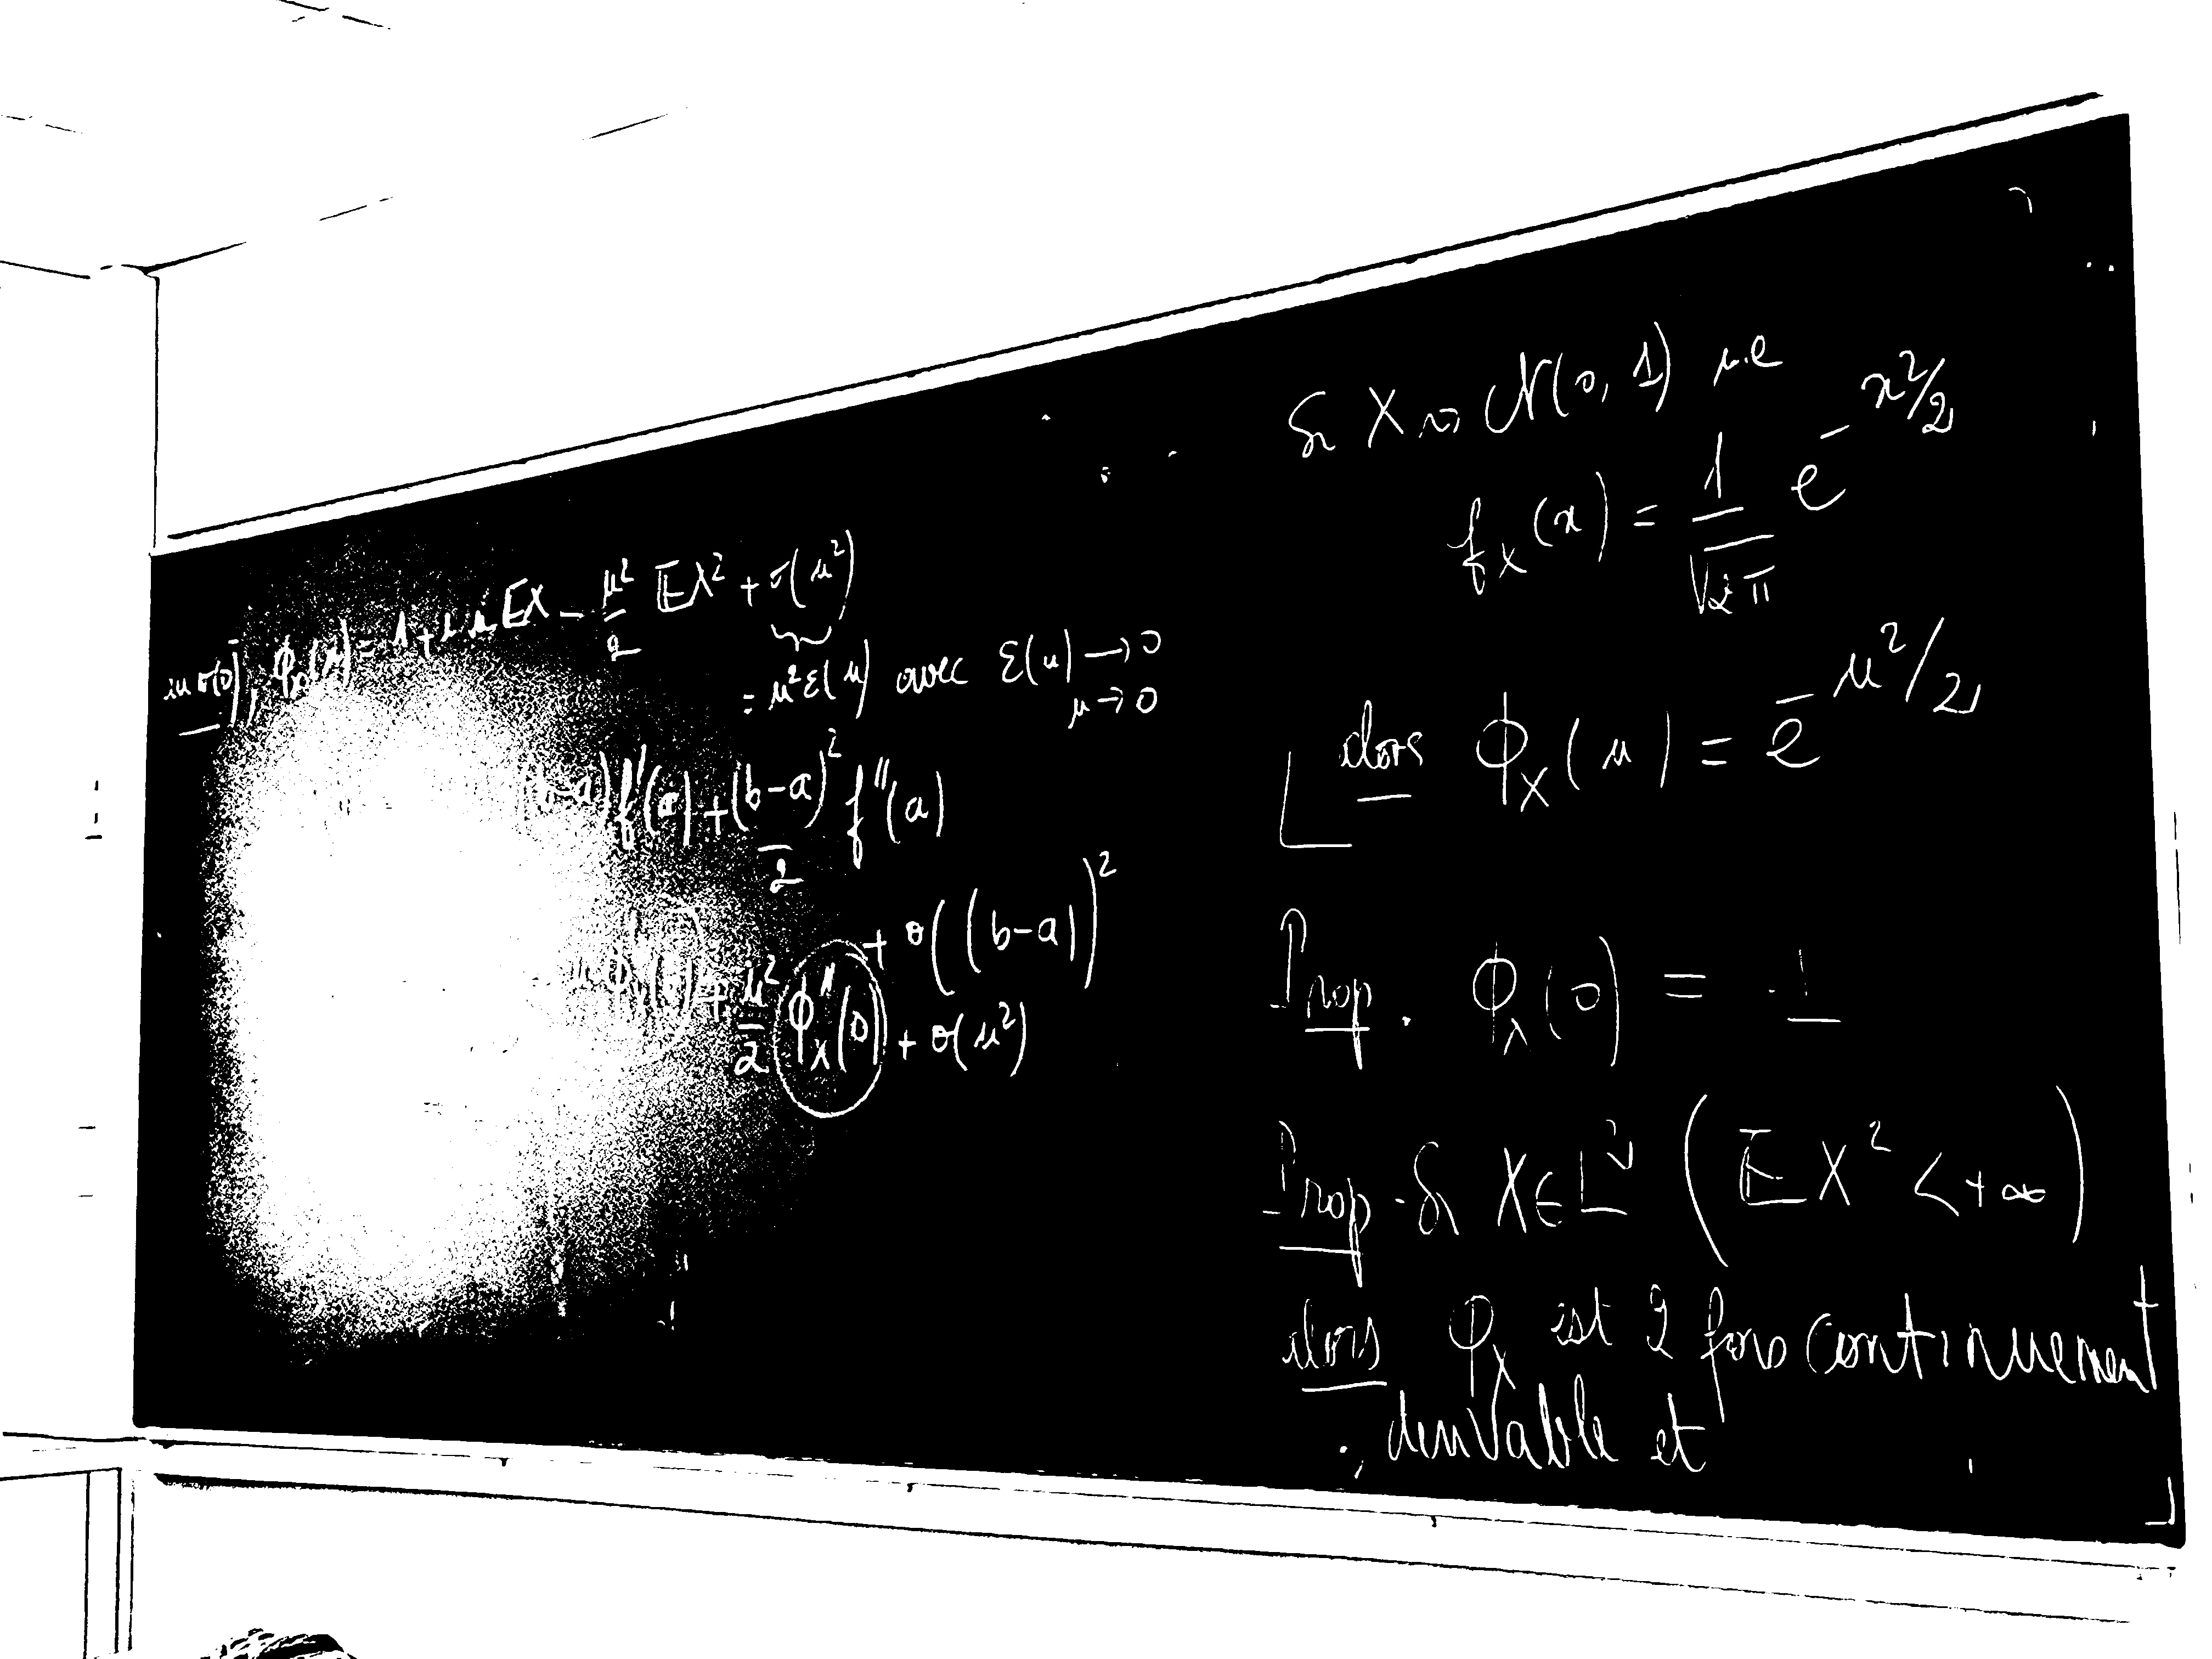 in v(0), φ_X(u) = 1 + i u EX - u²/2 EX² + o(u²)
= u² ε(u) avec ε(u) → 0
u → 0
(b-a) f'(a) + (b-a)²/2 f''(a)
+ o((b-a))²
+ u²/2 φ''_X(0) + o(u²)
Si X ⇝ N(0, 1) i.e
f_X(x) = 1/√2π e^-x²/2
alors φ_X(u) = e^-u²/2
Prop. φ_X(0) = 1
Prop. Si X ∈ L² (EX² < +∞)
alors φ_X est 2 fois continuement
dérivable et